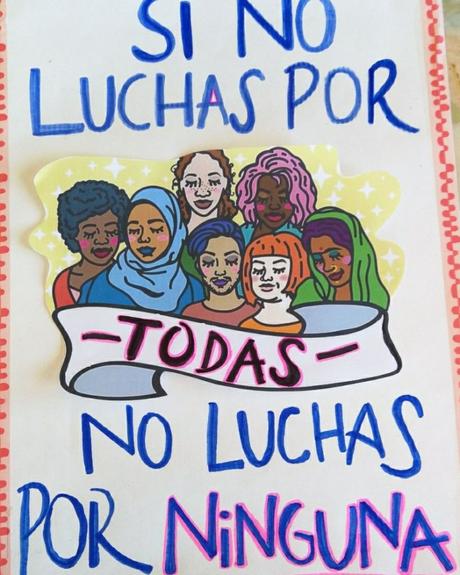 SI NO
LUCHAS POR
-TODAS-
NO LUCHAS
POR NiNGUNA